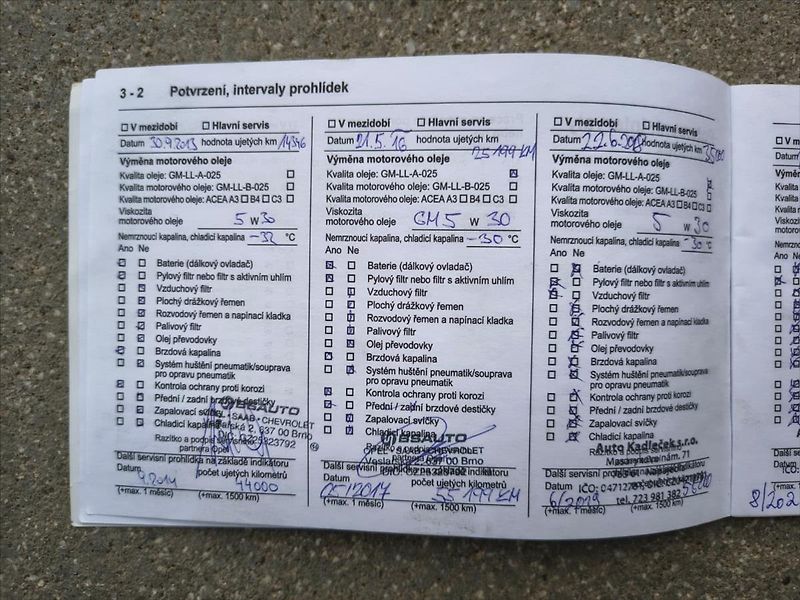 3 - 2 Potvrzení, intervaly prohlídek
V mezidobí Hlavní servis
Datum 30.9.2013 hodnota ujetých km 14346
Výměna motorového oleje
Kvalita oleje: GM-LL-A-025
Kvalita motorového oleje: GM-LL-B-025
Kvalita motorového oleje: ACEA A3 B4 C3
Viskozita
motorového oleje 5 W 30
Nemrznoucí kapalina, chladicí kapalina -32 °C
Ano Ne
Baterie (dálkový ovladač)
Pylový filtr nebo filtr s aktivním uhlím
Vzduchový filtr
Plochý drážkový řemen
Rozvodový řemen a napínací kladka
Palivový filtr
Olej převodovky
Brzdová kapalina
Systém huštění pneumatik/souprava
pro opravu pneumatik
Kontrola ochrany proti korozi
Přední / zadní brzdové destičky
Zapalovací svíčky
Chladicí kapalina
BSAUTO
SAAB - CHEVROLET
637 00 Brno
Razítko a podpis
partnera Opel
Další servisní prohlídka na základě indikátoru
Datum počet ujetých kilometrů
9.2014 44000
(+max. 1 měsíc) (+max. 1500 km)
V mezidobí Hlavní servis
Datum 21.5.16 hodnota ujetých km
25199 KM
Výměna motorového oleje
Kvalita oleje: GM-LL-A-025
Kvalita motorového oleje: GM-LL-B-025
Kvalita motorového oleje: ACEA A3 B4 C3
Viskozita
motorového oleje GM 5 W 30
Nemrznoucí kapalina, chladicí kapalina -30 °C
Ano Ne
Baterie (dálkový ovladač)
Pylový filtr nebo filtr s aktivním uhlím
Vzduchový filtr
Plochý drážkový řemen
Rozvodový řemen a napínací kladka
Palivový filtr
Olej převodovky
Brzdová kapalina
Systém huštění pneumatik/souprava
pro opravu pneumatik
Kontrola ochrany proti korozi
Přední / zadní brzdové destičky
Zapalovací svíčky
Chladicí kapalina
BSAUTO
OPEL - SAAB - CHEVROLET
637 00 Brno
Další servisní prohlídka na základě indikátoru
Datum počet ujetých kilometrů
05/2017 55 199 KM
(+max. 1 měsíc) (+max. 1500 km)
V mezidobí Hlavní servis
Datum hodnota ujetých km
Výměna motorového oleje
Kvalita oleje: GM-LL-A-025
Kvalita motorového oleje: GM-LL-B-025
Kvalita motorového oleje: ACEA A3 B4 C3
Viskozita
motorového oleje 5 W 30
Nemrznoucí kapalina, chladicí kapalina -30 °C
Ano Ne
Baterie (dálkový ovladač)
Pylový filtr nebo filtr s aktivním uhlím
Vzduchový filtr
Plochý drážkový řemen
Rozvodový řemen a napínací kladka
Palivový filtr
Olej převodovky
Brzdová kapalina
Systém huštění pneumatik/souprava
pro opravu pneumatik
Kontrola ochrany proti korozi
Přední / zadní brzdové destičky
Zapalovací svíčky
Chladicí kapalina
Auto Kadleček s.r.o.
Masarykovo nám. 71
Další servisní prohlídka
Datum
6/2019 tel. 723 981 382
(+max. 1 měsíc) (+max. 1500 km)